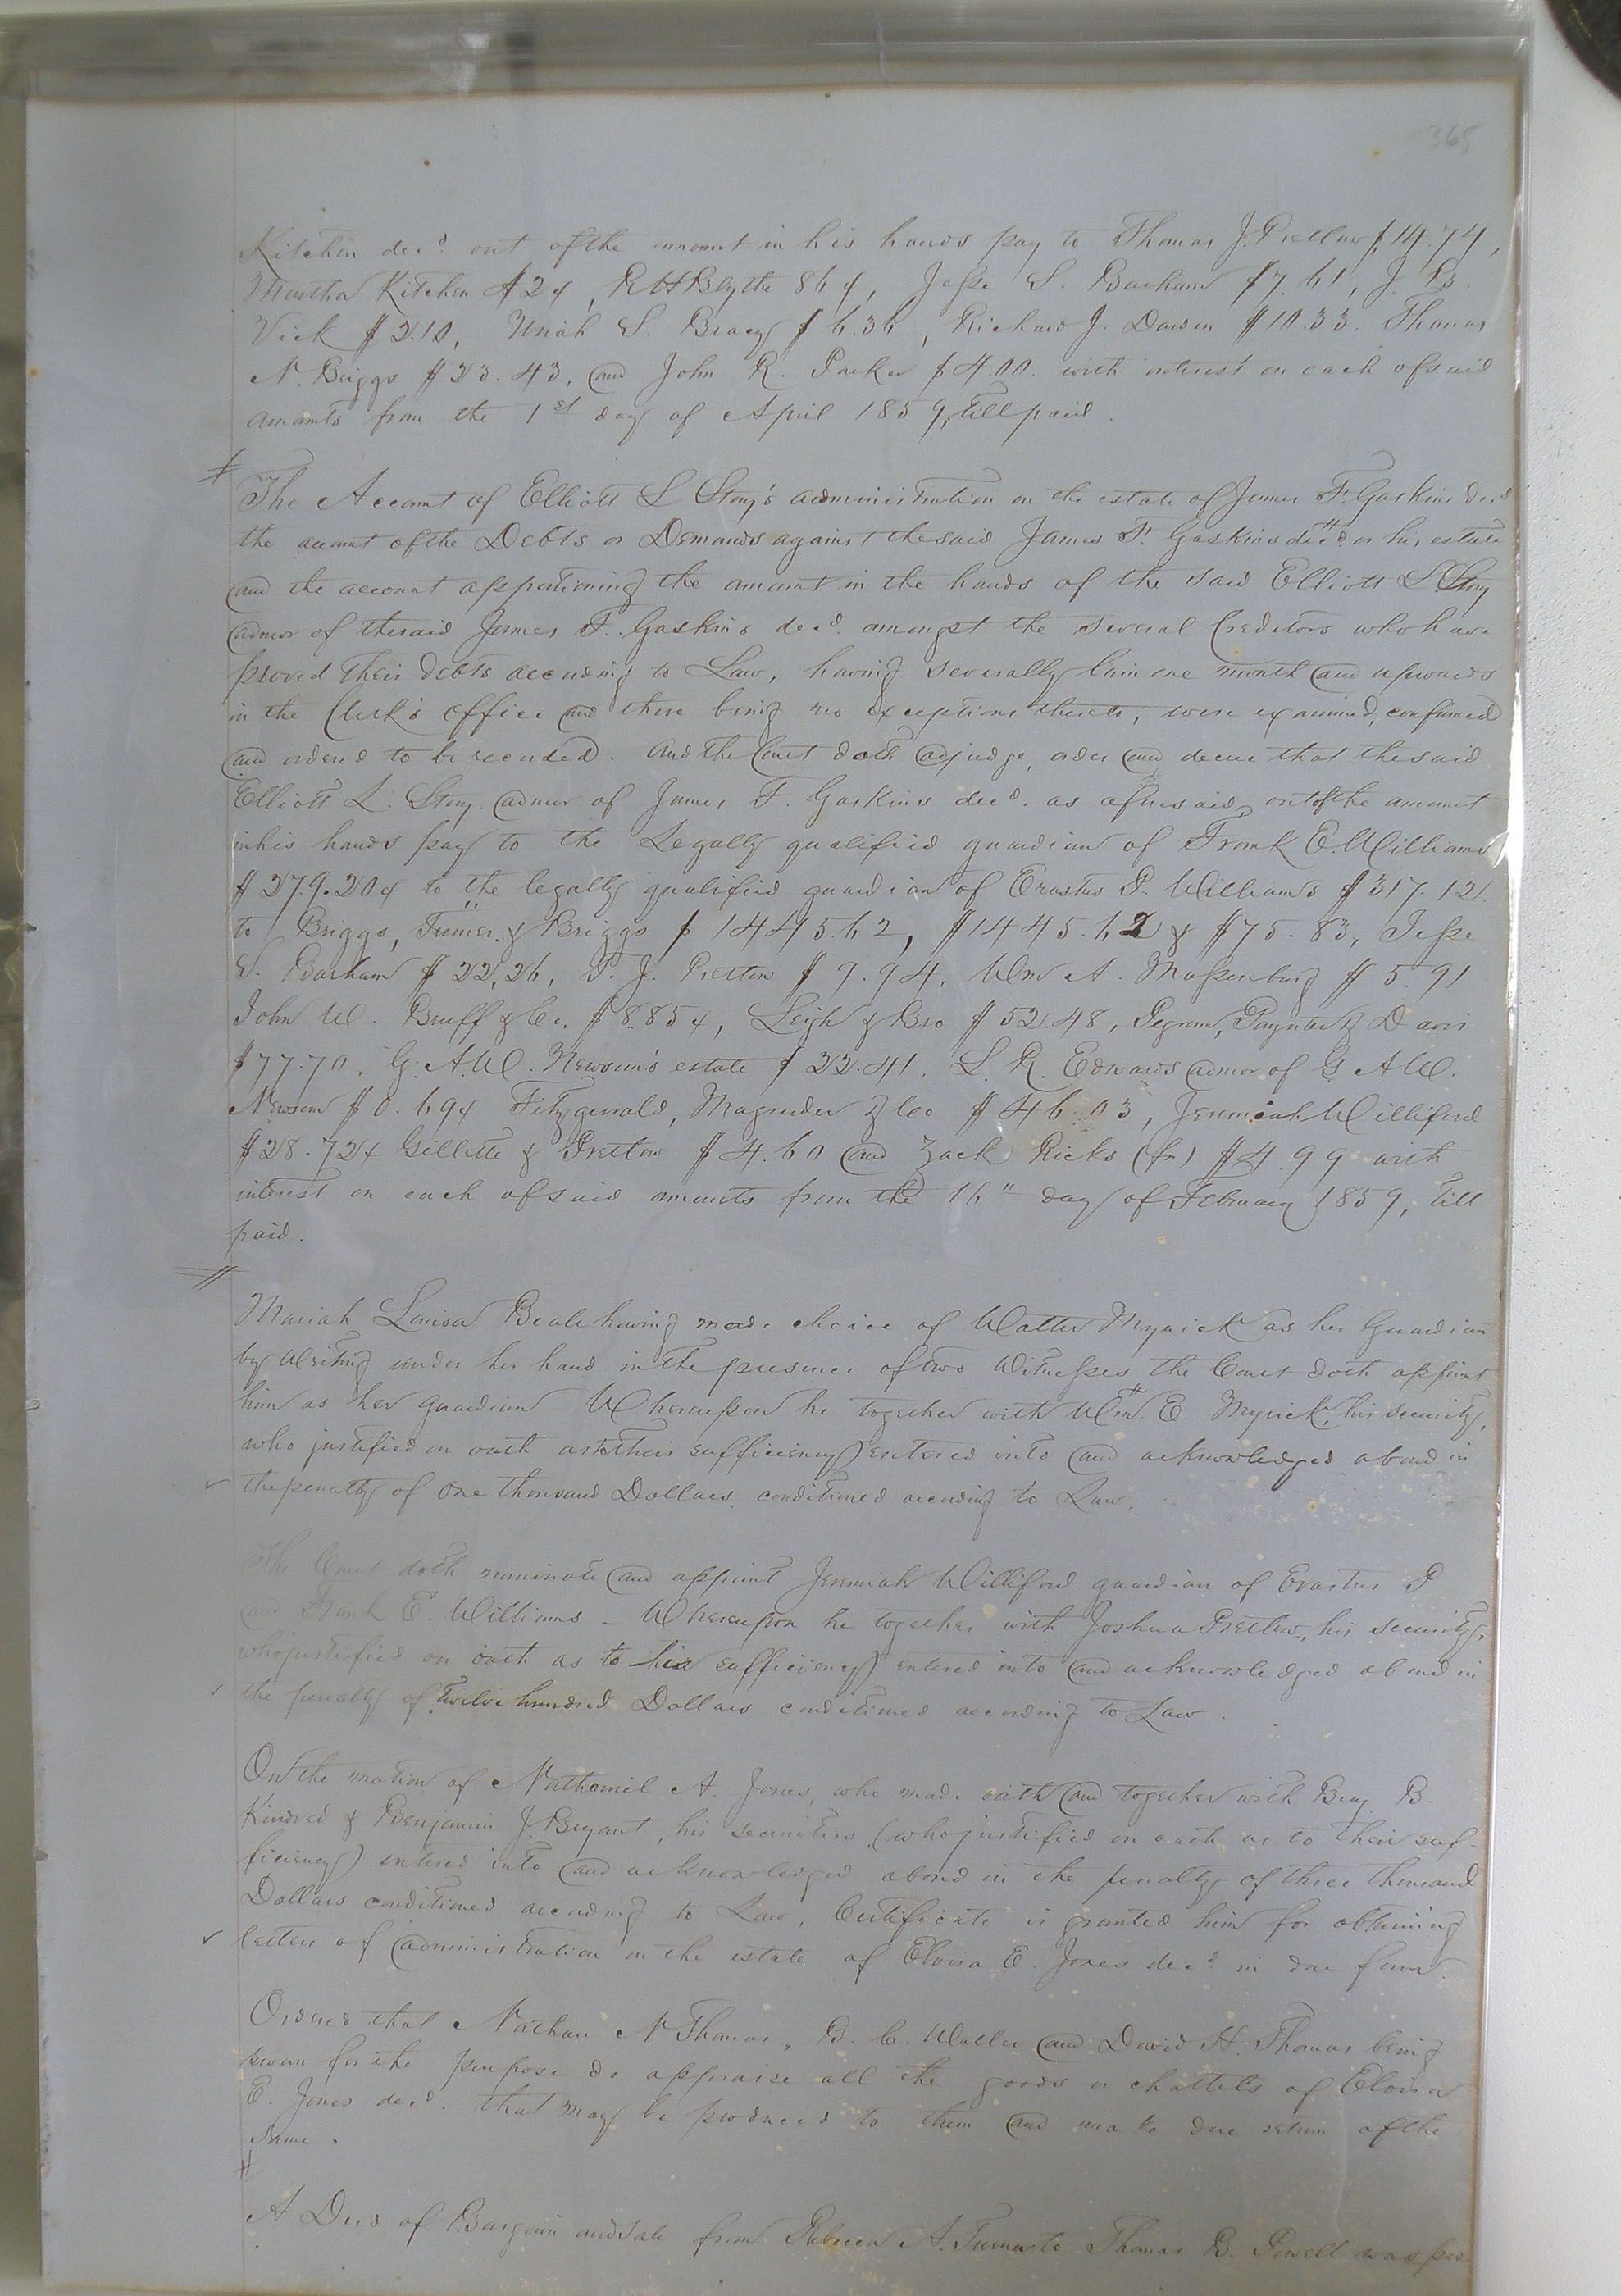 365
Kitchen dec.d out of the amount in his hands pay to Thomas J. Pretlow $14.74,
Martha Kitchen $24, R H Blythe 864, Jesse S. Barham $7.61, J. B.
Vick $2.10, Uriah S. Bracy $6.36, Richard J. Darden $10.33. Thomas
N. Briggs $23.43, and John R. Parker $4.00. with interest on each of said
amounts from the 1st day of April 1859, till paid.
The Account of Elliott L Story's administration on the estate of James F. Gaskins dec.d
the account of the Debts or Demands against the said James F. Gaskins dec.d or his estate
and the account apportioning the amount in the hands of the said Elliott L Story
admor of the said James F. Gaskins dec.d amongst the several Creditors who have
proved their debts according to Law, having severally lain one month and upwards
in the Clerk's office and there being no exceptions thereto, were examined, confirmed
and ordered to be recorded. And the Court doth adjudge, order and decree that the said
Elliott L. Story admor of James F. Gaskins dec.d as aforesaid, out of the amount
in his hands pay to the Legally qualified guardian of Frank E. Williams
$279.20 & to the legally qualified guardian of Erastus P. Williams $317.12
to Briggs, Turner & Briggs $1445.62, $1445.62 & $75.83, Jesse
S. Barham $22.26, T. J. Pretlow $9.94, Wm A. Massenburg $5.91
John W. Bruff & Co. $8.85 &, Leigh & Bro $52.48, Pegram, Paynter & Davis
$77.70, G. A. W. Newsom's estate $22.41, L. R. Edwards admor of G A W.
Newsom $0.69 & Fitzgerrald, Magruder & Co $46.03, Jeremiah Williford
$28.72 & Gillette & Pretlow $4.60 and Zack Ricks (fn) $4.99 with
interest on each of said amounts from the 16" day of February 1859, till
paid.
Mariah Louisa Beale having made choice of Walter Myrick as her Guardian
by Writing under her hand in the presence of two Witnesses the Court doth appoint
him as her guardian. Whereupon he together with Wm E. Myrick, his security,
who justified on oath as to their sufficiency) entered into and acknowledged a bond in
the penalty of One thousand Dollars, conditioned according to Law.
The Court doth nominate and appoint Jeremiah Williford guardian of Erastus P
and Frank E. Williams - Whereupon he together with Joshua Pretlow, his security,
who justified on oath as to his sufficiency) entered into and acknowledged a bond in
the penalty of Twelve hundred Dollars conditioned according to Law.
On the motion of Nathaniel A. Jones, who made oath and together with Benj. B.
Kindred & Benjamin J. Bryant, his securities, (who justified on oath as to their suf-
ficiency) entered into and acknowledged a bond in the penalty of three thousand
Dollars conditioned according to Law, Certificate is granted him for obtaining
letters of administration on the estate of Elvira E. Jones dec.d in due form.
Ordered that Nathan N Thomas, B. C. Waller and David H. Thomas being
sworn for the purpose do appraise all the goods or chattels of Elvira
E. Jones dec.d. that may be produced to them and make due return of the
same.
A Deed of Bargain and Sale from Rebecca A. Turner to Thomas B. Powell was pro-